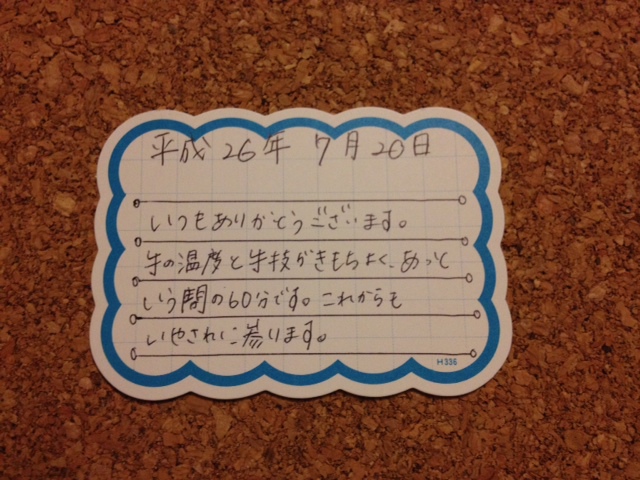 平成 26年 7月 20日
いつもありがとうございます。
手の温度と手技がきもちよく、あっと
いう間の60分です。これからも
いやされに参ります。
H336